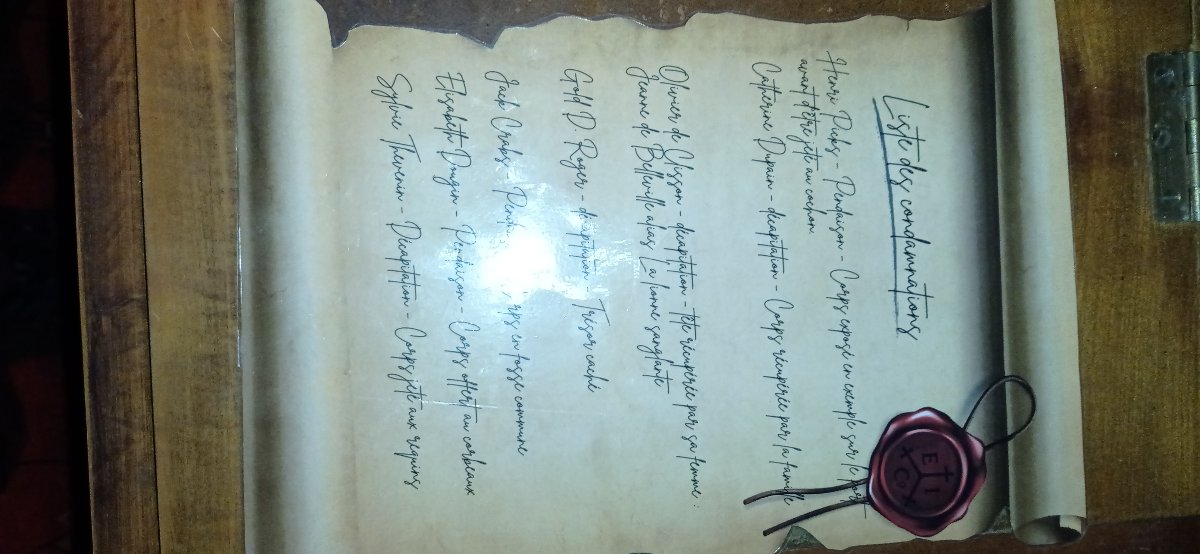 Liste des condamnations
Henri Picks - Pendaison - Corps exposé en exemple sur le port
avant d'être jeté au cochon
Catherine Dupain - décapitation - Corps récupérée par la famille
Olivier de Clisson - décapitation - tête récupérée par sa femme :
Jeanne de Belleville alias La lionne sanglante
Gold D. Roger - décapitation - Trésor caché
Jack Crabs - en fosse commune
Elisabeth - Pendaison - Corps offert au corbeaux
Sylvie Thevenin - Décapitation - Corps jeté aux requins
E I
X Co X